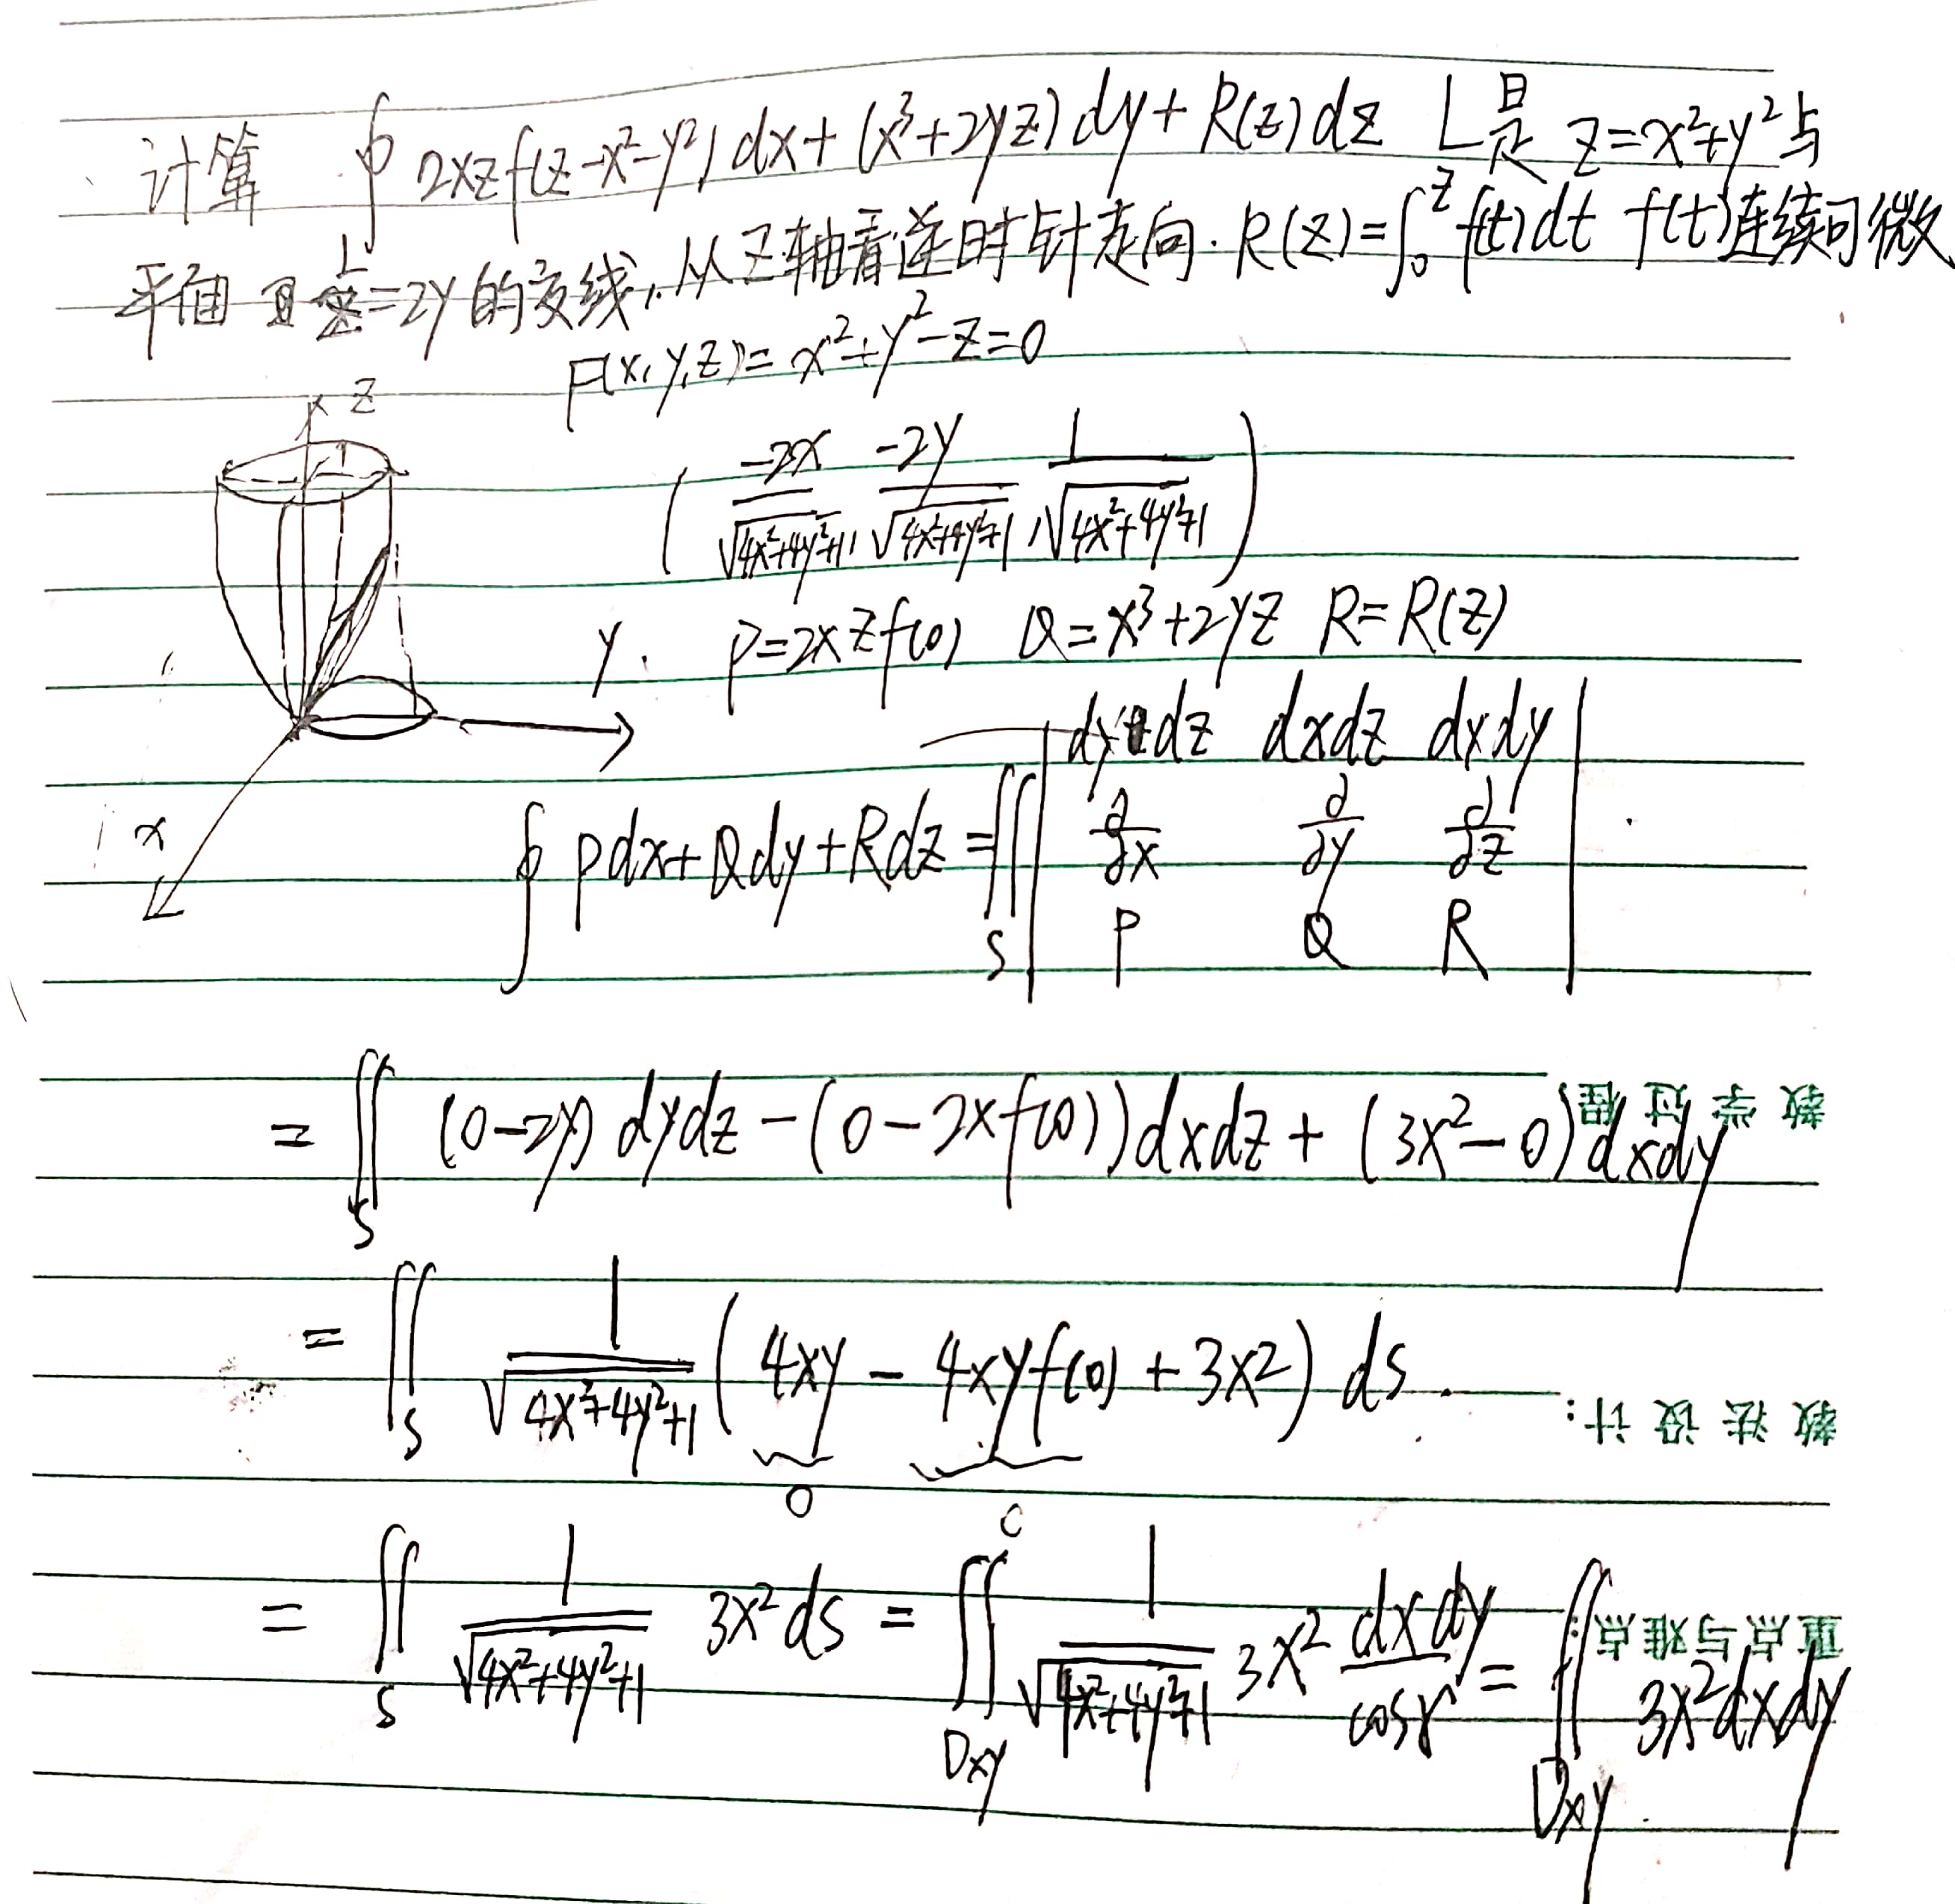 计算 ∮_L 2xzf(z-x²-y²)dx+(x³+2yz)dy+R(z)dz L是 z=x²+y²与
平面 z=2y的交线,从z轴看逆时针走向. R(z)=∫₀^z f(t)dt f(t)连续可微
F(x,y,z)=x²+y²-z=0
z
(-2x/√(4x²+4y²+1), -2y/√(4x²+4y²+1), 1/√(4x²+4y²+1))
y. P=2xzf(0) Q=x³+2yz R=R(z)
x
∮Pdx+Qdy+Rdz=∬_S | dydz dxdz dxdy |
| ∂/∂x ∂/∂y ∂/∂z |
| P Q R |
=∬_S (0-2y)dydz-(0-2xf(0))dxdz+(3x²-0)dxdy
教学过程
=∬_S 1/√(4x²+4y²+1) (4xy-4xyf(0)+3x2)ds.
0 0
教法设计:
=∬_S 1/√(4x²+4y²+1) 3x²ds=∬_Dxy 1/√(4x²+4y²+1) 3x² dxdy/cosγ=∬_Dxy 3x²dxdy
重点与难点: